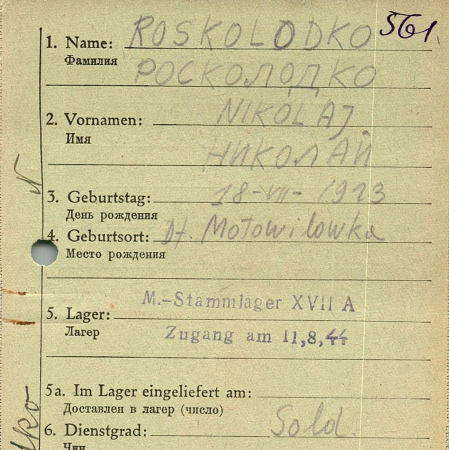 561.
1. Name: ROSKOLODKO
Фамилия РОСКОЛОДКО
2. Vornamen: NIKOLAJ
Имя НИКОЛАЙ
3. Geburtstag: 18-VII-1923
День рождения
4. Geburtsort: Df. Motowilowka
Место рождения
M.-Stammlager XVII A
5. Lager:
Лагер Zugang am 11,8,44
5a. Im Lager eingeliefert am:
Доставлен в лагер (число)
6. Dienstgrad: Sold.
Чин